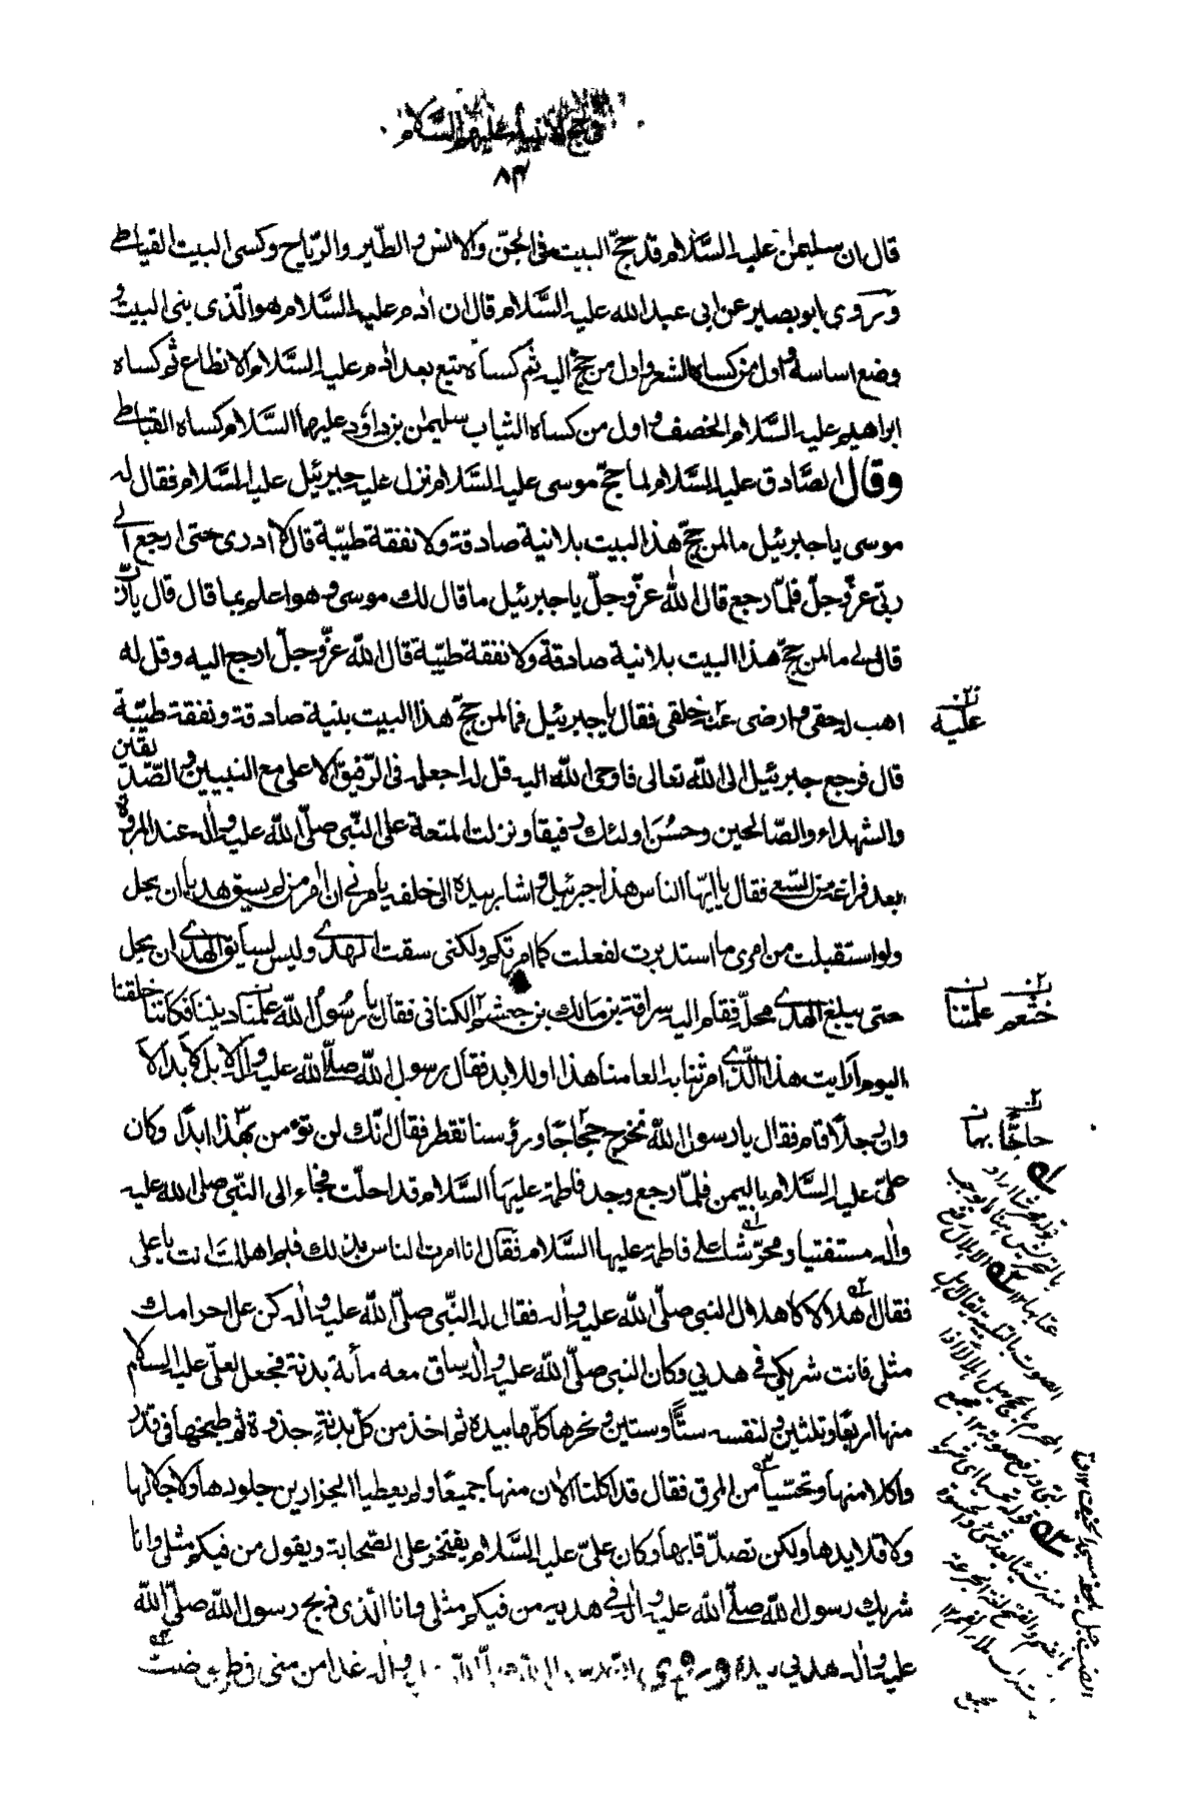 في حج الانبياء عليهم السَّلام
٨٣
قال ان سليمٰن عليه السَّلام قد حجّ البيت فى الجنّ والانس والطّير والرّياح وكسى البيت القباطى
وروى ابو بصير عن ابى عبد الله عليه السَّلام قال ان اٰدم عليه السَّلام هو الّذى بنى البيت و
وضع اساسه و اول من كساه الشعر و اول من حجّ اليه ثم كساه تبع بعد اٰدم عليه السَّلام الانطاع ثم كساه
ابراهيم عليه السَّلام الخصف و اول من كساه الثياب سليمٰن بن داؤد عليهما السَّلام كساه القباطى
وقال الصّادق عليه السَّلام لما حجّ موسى عليه السَّلام نزل عليه جبرئيل عليه السَّلام فقال له
موسى يا جبرئيل ما لمن حجّ هذا البيت بلا نية صادقة ولا نفقة طيّبة قال لا ادرى حتى ارجع الى
ربّى عزّ وجلّ فلمّا رجع قال الله عزّ وجلّ يا جبرئيل ما قال لك موسى و هو اعلم بما قال قال يا ربّ
قال لى ما لمن حجّ هذا البيت بلا نية صادقة ولا نفقة طيّبة قال الله عزّ وجلّ ارجع اليه وقل له
اهب له حقى و ارضى عنه خلقى فقال يا جبرئيل فما لمن حجّ هذا البيت بنية صادقة ونفقة طيّبة
عليه
قال فرجع جبرئيل الى الله تعالى فاوحى الله اليه قل له اجعله فى الرّفيق الاعلى مع النبيين و الصّدّيقين
والشهداء والصّالحين وحسُن اولئك رفيقا ونزلت المتعة على النّبى صلّى الله عليه واٰله عند المروة
بعد فراغه من السّعى فقال يا ايّها الناس هذا جبرئيل و اشار بيده الى خلفه يأمرنى ان اٰمر من لم يسق هديا ان يحل
ولو استقبلت من امرى ما استدبرت لفعلت كما امرتكم ولكنى سقت الهدى وليس لسايق الهدى ان يحل
حتى يبلغ الهدى محلّه فقام اليه سراقة بن مالك بن جعشم الكنانى فقال يا رسُول الله علمنا ديننا فكانّنا خلقنا
خثعم علمتنا
اليوم ارايت هذا الّذى امرتنا به العامنا هذا او للابد فقال رسول الله صلّى الله عليه واٰله لا بل لابد الا
وان رجلا قام فقال يا رسول الله نخرج حجاجا ورؤسنا تقطر فقال انّك لن تؤمن بهٰذا ابدًا وكان
حاجًّا بها
علىّ عليه السَّلام باليمن فلمّا رجع وجد فاطمة عليها السَّلام قد احلّت فجاء الى النّبى صلى الله عليه
واٰله مستفتيا ومحرّشا على فاطمة عليها السَّلام فقال انا امرت الناس بذلك فبم اهللت انت يا على
فقال اهلالا كاهلال النبى صلّى الله عليه واٰله فقال له النّبى صلّى الله عليه واٰله كن على احرامك
مثلى فانت شريكى فى هديى وكان النبى صلّى الله عليه واٰله ساق معه مأية بدنة فجعل لعلىّ عليه السلام
منها اربعًا وثلثين و لنفسه ستًّا وستين و نحرها كلّها بيده ثم اخذ من كلّ بدنةٍ جذوة ثم طبخها فى قدر
واكلا منها وتحسّيا من المرق فقال قد اكلنا الاٰن منها جميعًا ولم يعطيا الجزارين جلودها ولا جلالها
ولا قلايدها ولكن تصدّقا بها وكان علىّ عليه السَّلام يفتخر على الصّحابة ويقول من فيكم مثلى وانا
شريك رسول الله صلّى الله عليه واٰله فى هديه من فيكم مثلى وانا الّذى ذبح رسول الله صلّى الله
عليه واٰله هديى بيده وروى واٰله غدا من منى فى طريق ضبّ